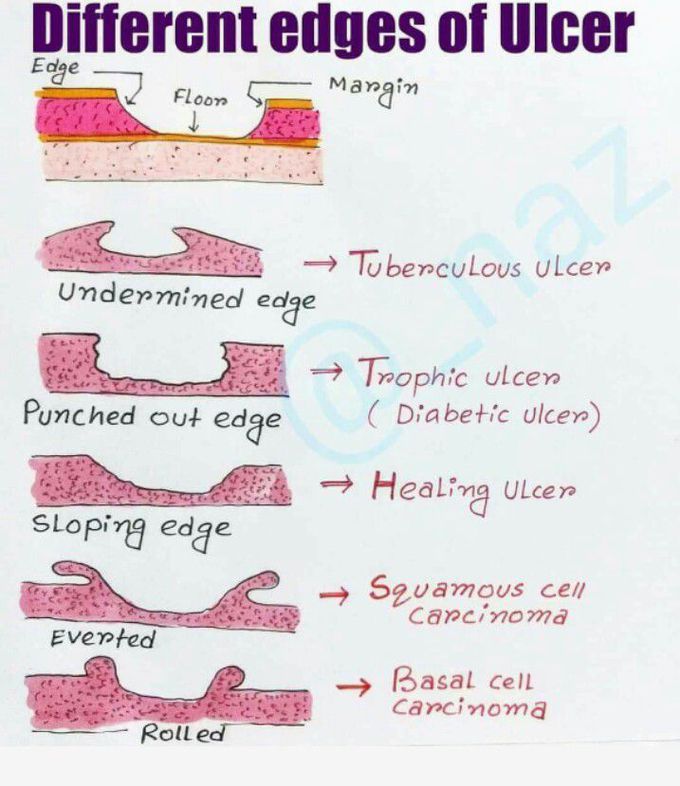 Different edges of Ulcer
Edge
Floor
Margin
Undermined edge
→ Tuberculous ulcer
Punched out edge
→ Trophic ulcer
( Diabetic ulcer)
Sloping edge
→ Healing ulcer
Everted
→ Squamous cell
carcinoma
Rolled
→ Basal cell
carcinoma
@_naz